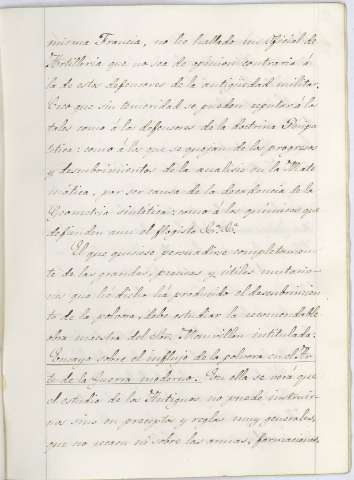 misma Francia, no he hallado un Oficial de
Artilleria que no sea de opinion contraria á
la de estos defensores de la antigüedad militar.
Creo que sin temeridad se pueden reputar á la
tales como á los defensores de la doctrina Peripa
tetica: como á los que se quejan de los progresos
y descubrimientos de la analisis en la Mate
mática, por ser causa de la decadencia de la
Geometria sintética: como á los quimicos que
defienden aun el flogisto &c. &c.
El que quisiese persuadirse completamen-
te de las grandes, precisas y útiles mutacio-
nes que he dicho há producido el descubrimien
to de la polvora, debe estudiar la recomendable
obra maestra del Sor. Mauvillon intitulada:
Ensayo sobre el influjo de la polvora en el Ar-
te de la Guerra moderno. Con ella se verá que
el estudio de los Antiguos no puede instruir-
nos sino en preceptos y reglas muy generales,
que no recaen ni sobre las armas, formaciones